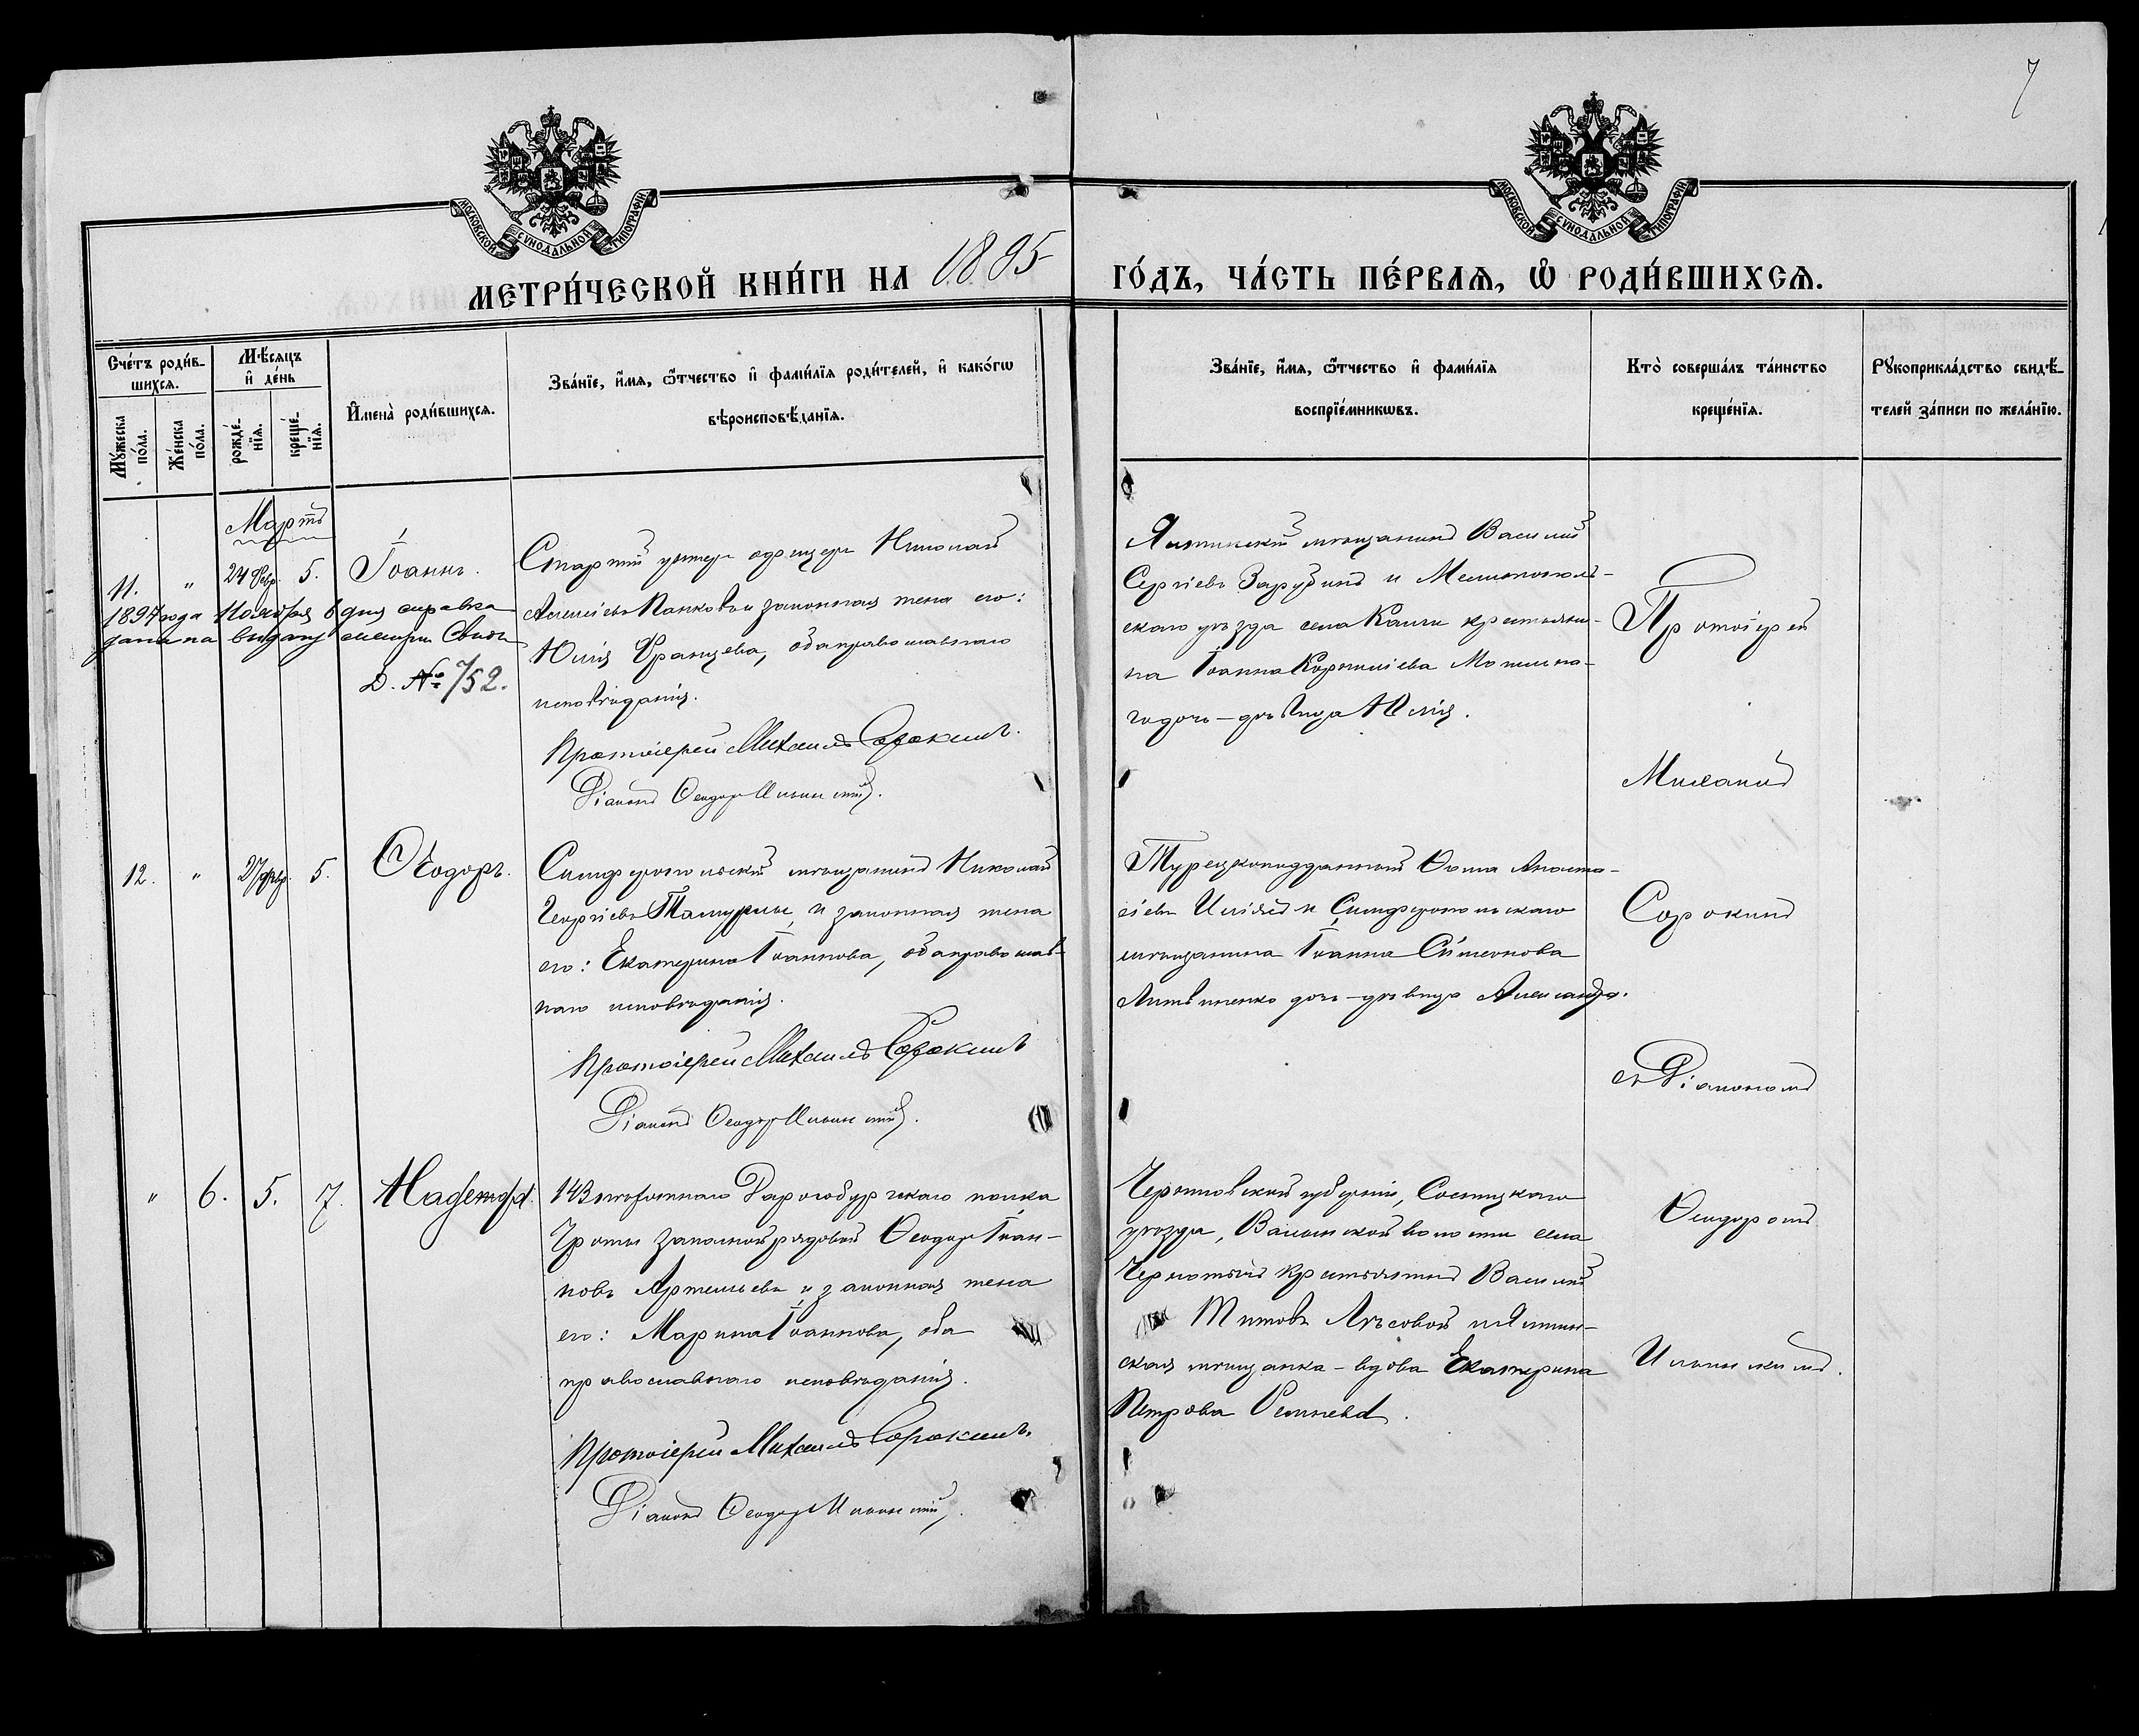 7
МОСКОВСКОЙ СѴНОДАЛЬНОЙ ТИПОГРАФІИ
МОСКОВСКОЙ СѴНОДАЛЬНОЙ ТИПОГРАФІИ
МЕТРИ́ЧЕСКОЙ КНИ́ГИ НА 1895
ГО́ДЪ, ЧА́СТЬ ПЕ́РВАѦ, Ѡ҆ РОДИ́ВШИХСѦ.
Сче́тъ роди́в-
шихсѧ.
Мꙋ́жеска по́ла.
Же́нска по́ла.
Мѣ́сяцъ
и҆ де́нь
рожде́-
нїѧ.
креще́-
нїѧ.
И҆мена̀ роди́вшихсѧ.
Зва́нїе, и҆́мѧ, ѻ҆́тчество и҆ фами́лїѧ роди́телей, и҆ како́гѡ
вѣроисповѣ́данїѧ.
Зва́нїе, и҆́мѧ, ѻ҆́тчество и҆ фами́лїѧ
воспрїе́мникѡвъ.
Кто̀ соверша́лъ та́инство
креще́нїѧ.
Рꙋкоприкла́дство свидѣ́-
телей за́писи по жела́нїю.
Мартъ
11. " 24 Февр. 5. Іоаннъ.
1897 года Ноября 6 дня справка
дана на выдачу метри. Свид.
Д. № 752.
Старшій унтеръ офицеръ Николай
Алексіевъ Панковъ и законная жена его:
Юлія Францева, оба православнаго
исповѣданія.
Протоіерей Михаилъ Сорокинъ.
Діаконъ Ѳеодоръ Ильинскій.
Ялтинскій мѣщанинъ Василій
Сергіевъ Зарубинъ и Мелитополь-
скаго уѣзда села Каиги крестьяни-
на Іоанна Корниліева
дочь-дѣвица Юлія.
Протоіерей
Михаилъ
Сорокинъ
съ Діакономъ
Ѳеодоромъ
Ильинскимъ.
12. " 27 февр. 5. Ѳеодоръ.
Симферопольскій мѣщанинъ Николай
Георгіевъ и законная жена
его: Екатерина Іоаннова, оба православ-
наго исповѣданія.
Протоіерей Михаилъ Сорокинъ
Діаконъ Ѳеодоръ Ильинскій.
Турецкоподданный Ѳома Анаста-
сіевъ и Симферопольскаго
мѣщанина Іоанна Симеонова
Литвиненко дочь-дѣвица Александра.
" 6. 5. 7. Надежда.
143 пѣхотнаго Дорогобужскаго полка
роты запасный рядовой Ѳеодоръ Іоан-
новъ Артемьевъ и законная жена
его: Марина Іоаннова, оба
православнаго исповѣданія.
Протоіерей Михаилъ Сорокинъ.
Діаконъ Ѳеодоръ Ильинскій.
Черниговской губерніи, Сосницкаго
уѣзда, Волынской волости села
крестьянинъ Василій
Титовъ Лѣсовой и Ялтин-
ская мѣщанка-вдова Екатерина
Петрова